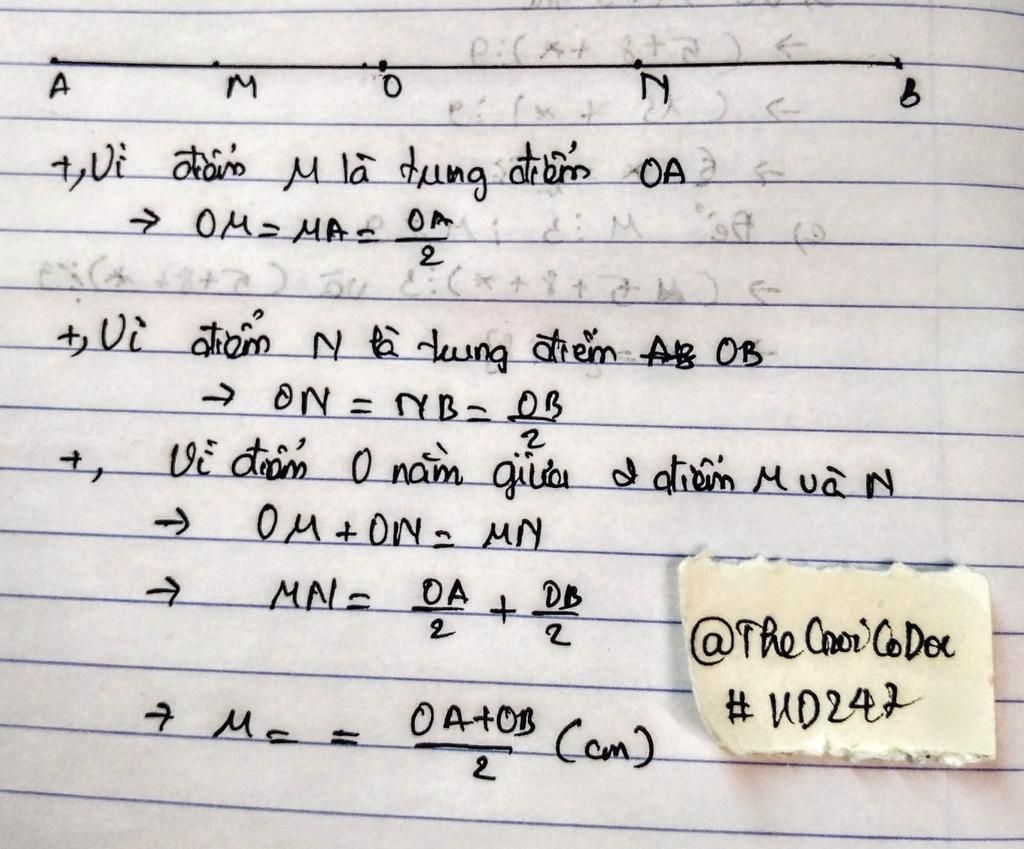 A M O N B
+, Vì điểm M là trung điểm OA
→ OM = MA = OA/2
+, Vì điểm N là trung điểm AB OB
→ ON = NB = OB/2
+, Vì điểm O nằm giữa 2 điểm M và N
→ OM + ON = MN
→ MN = OA/2 + OB/2
→ M = = OA+OB/2 (cm)
#HD247